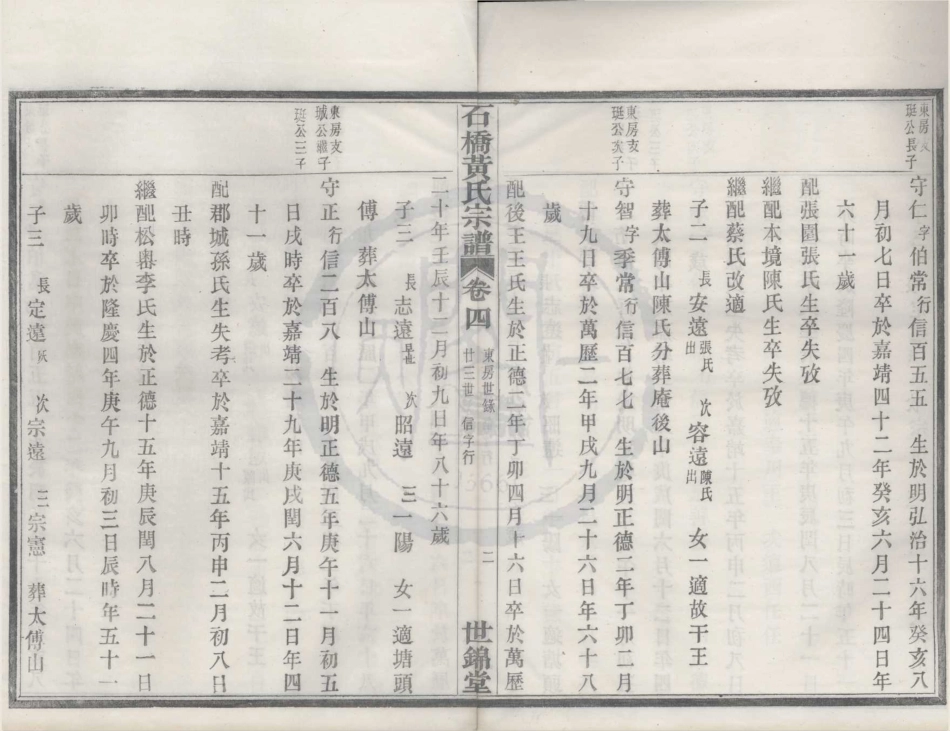 東房支
珽公長子
守仁字伯常行信百五五　生於明弘治十六年癸亥八
月初七日卒於嘉靖四十二年癸亥六月二十四日年
六十一歲
配張園張氏生卒失攷
繼配本境陳氏生卒失攷
繼配蔡氏改適
子二　長安遠張氏出　次容遠陳氏出　女一適故干王
葬太傅山陳氏分葬庵後山
東房支
珽公次子
守智字季常行信百七七　生於明正德二年丁卯二月
十九日卒於萬歷二年甲戌九月二十六日年六十八
歲
配後王王氏生於正德二年丁卯四月十六日卒於萬歷
石橋黃氏宗譜　卷四　東房世錄　廿三世　信字行　二　世錦堂
二十年壬辰十二月初九日年八十六歲
子三　長志遠早世　次昭遠　三一陽　女一適塘頭
傅　葬太傅山
東房支
珹公雅子
珽公三子
守正行信二百八　生於明正德五年庚午十一月初五
日戌時卒於嘉靖二十九年庚戌閏六月十二日年四
十一歲
配郡城孫氏生失考卒於嘉靖十五年丙申二月初八日
丑時
繼配松嶴李氏生於正德十五年庚辰閏八月二十一日
卯時卒於隆慶四年庚午九月初三日辰時年五十一
歲
子三　長定遠　次宗遠　三宗憲　葬太傅山